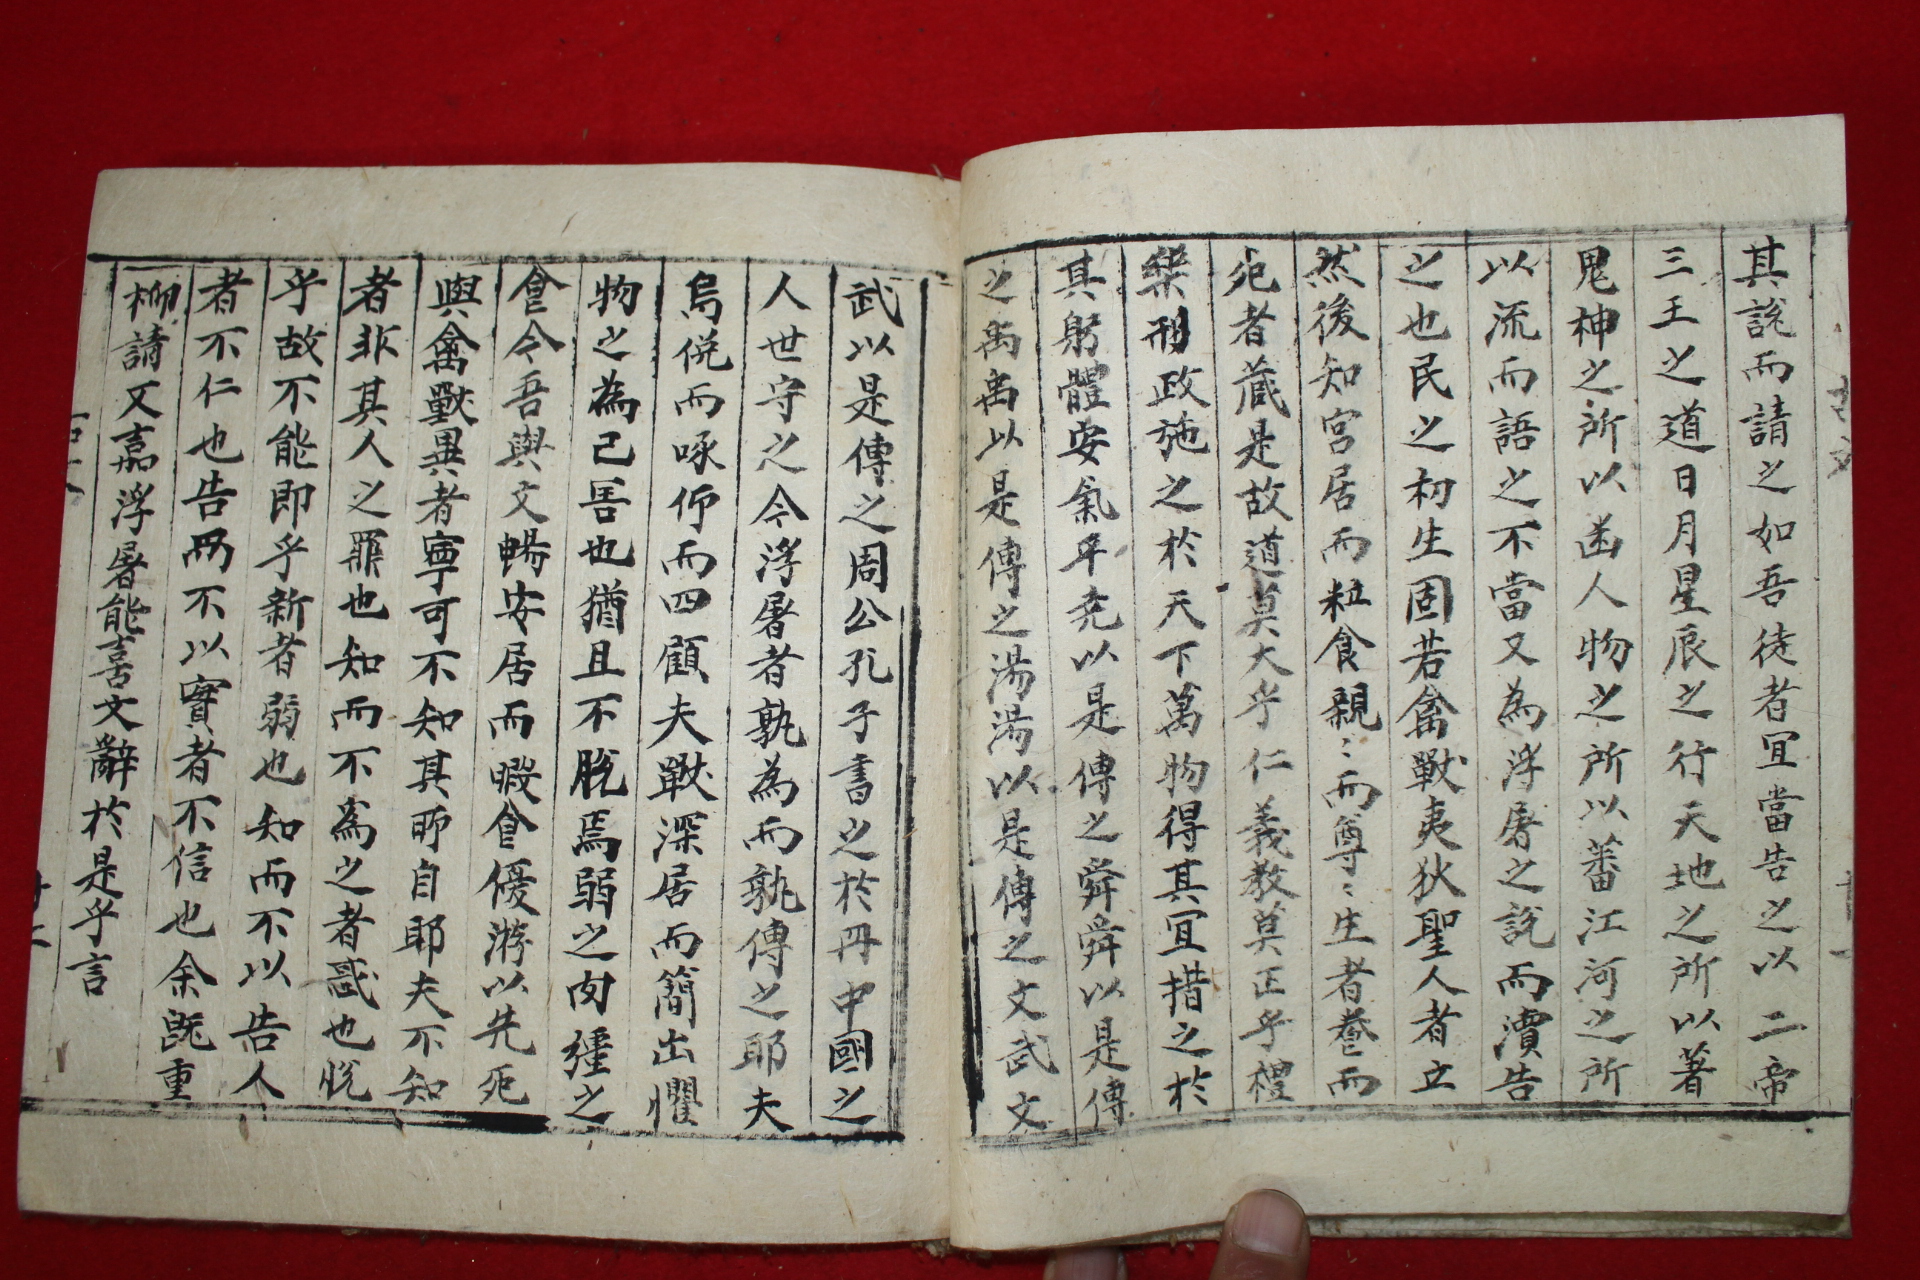 其說而請之如吾徒者宜當告之以二帝
三王之道日月星辰之行天地之所以著
鬼神之所以幽人物之所以蕃江河之所
以流而語之不當又為浮屠之說而瀆告
之也民之初生固若禽獸夷狄聖人者立
然後知宮居而粒食親〻而尊〻生者養而
死者蔵是故道莫大乎仁義教莫正乎禮
樂刑政施之於天下萬物得其宜措之於
其躬體安氣平尭以是傳之舜舜以是傳
之禹禹以是傳之湯湯以是傳之文武文
武以是傳之周公孔子書之於冊中國之
人世守之今浮屠者孰為而孰傳之耶夫
鳥俛而啄仰而四顧夫獸深居而簡出懼
物之為己害也猶且不脫焉弱之肉強之
食今吾與文暢安居而暇食優游以先死
與禽獸異者寧可不知其所自耶夫不知
者非其人之罪也知而不為之者惑也悅
乎故不能即乎新者弱也知而不以告人
者不仁也告而不以實者不信也余旣重
柳請又嘉浮屠能喜文辭於是乎言